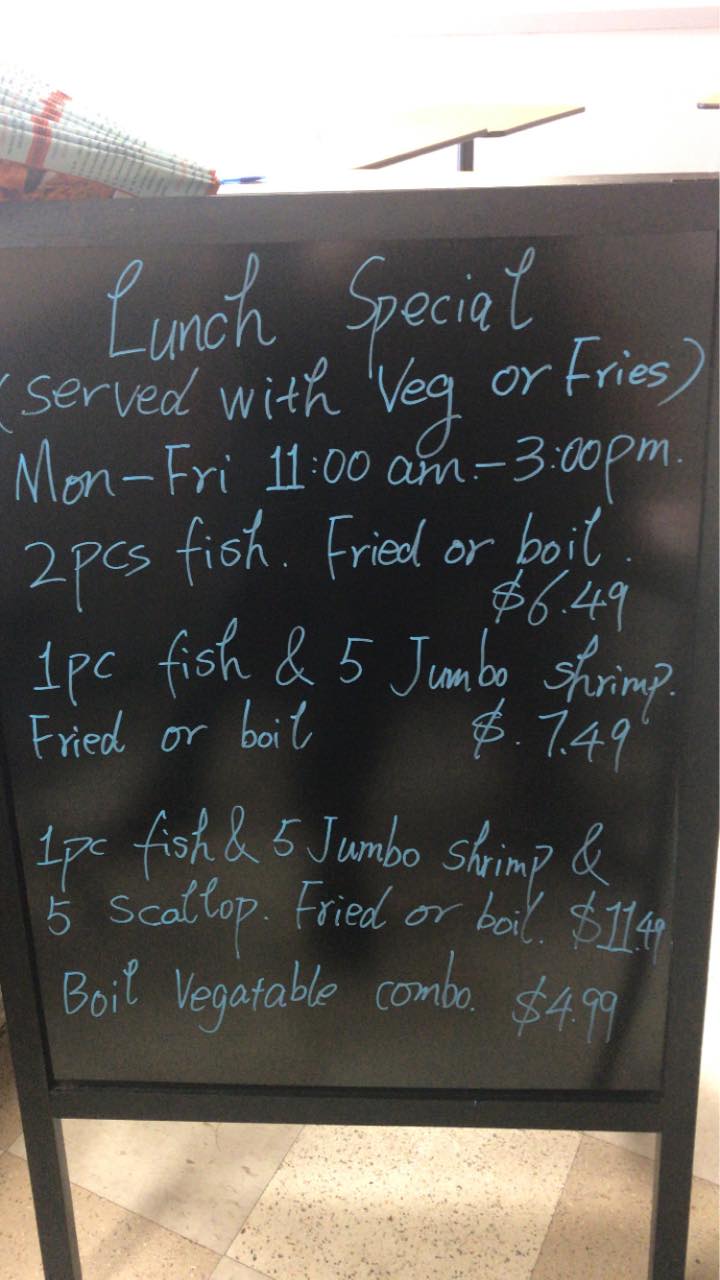 Lunch Special
(served with Veg or Fries)
Mon-Fri 11:00 am.-3:00pm.
2pcs fish. Fried or boil.
$6.49
1pc fish & 5 Jumbo shrimp.
Fried or boil $.7.49
1pc fish & 5 Jumbo shrimp &
5 scallop. Fried or boil. $11.49
Boil Vegatable combo. $4.99